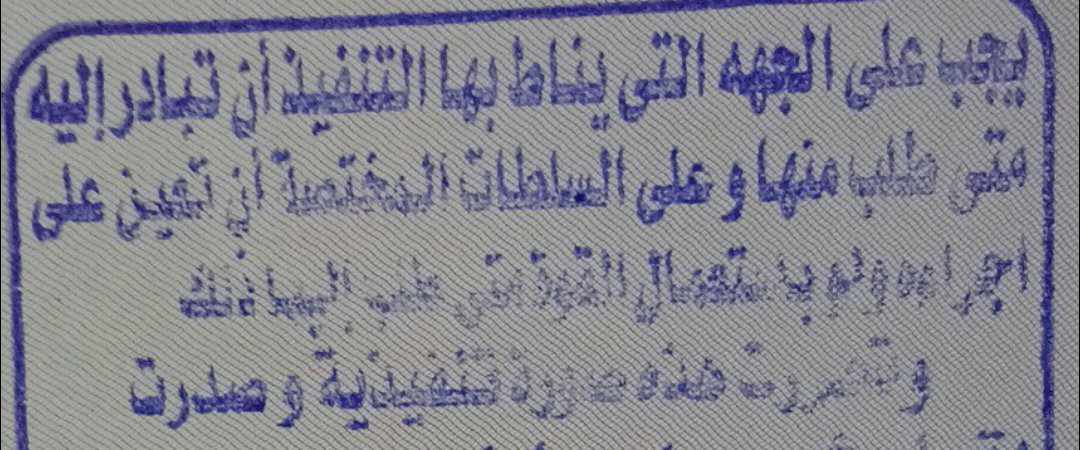 يجب على الجهه التى يناط بها التنفيذ أن تبادر إليه
متى طلب منها و على السلطات المختصة أن تعين على
اجراءه ولو باستعمال القوة متى طلب إليها ذلك
و تحررت هذه صورة تنفيذية و صدرت